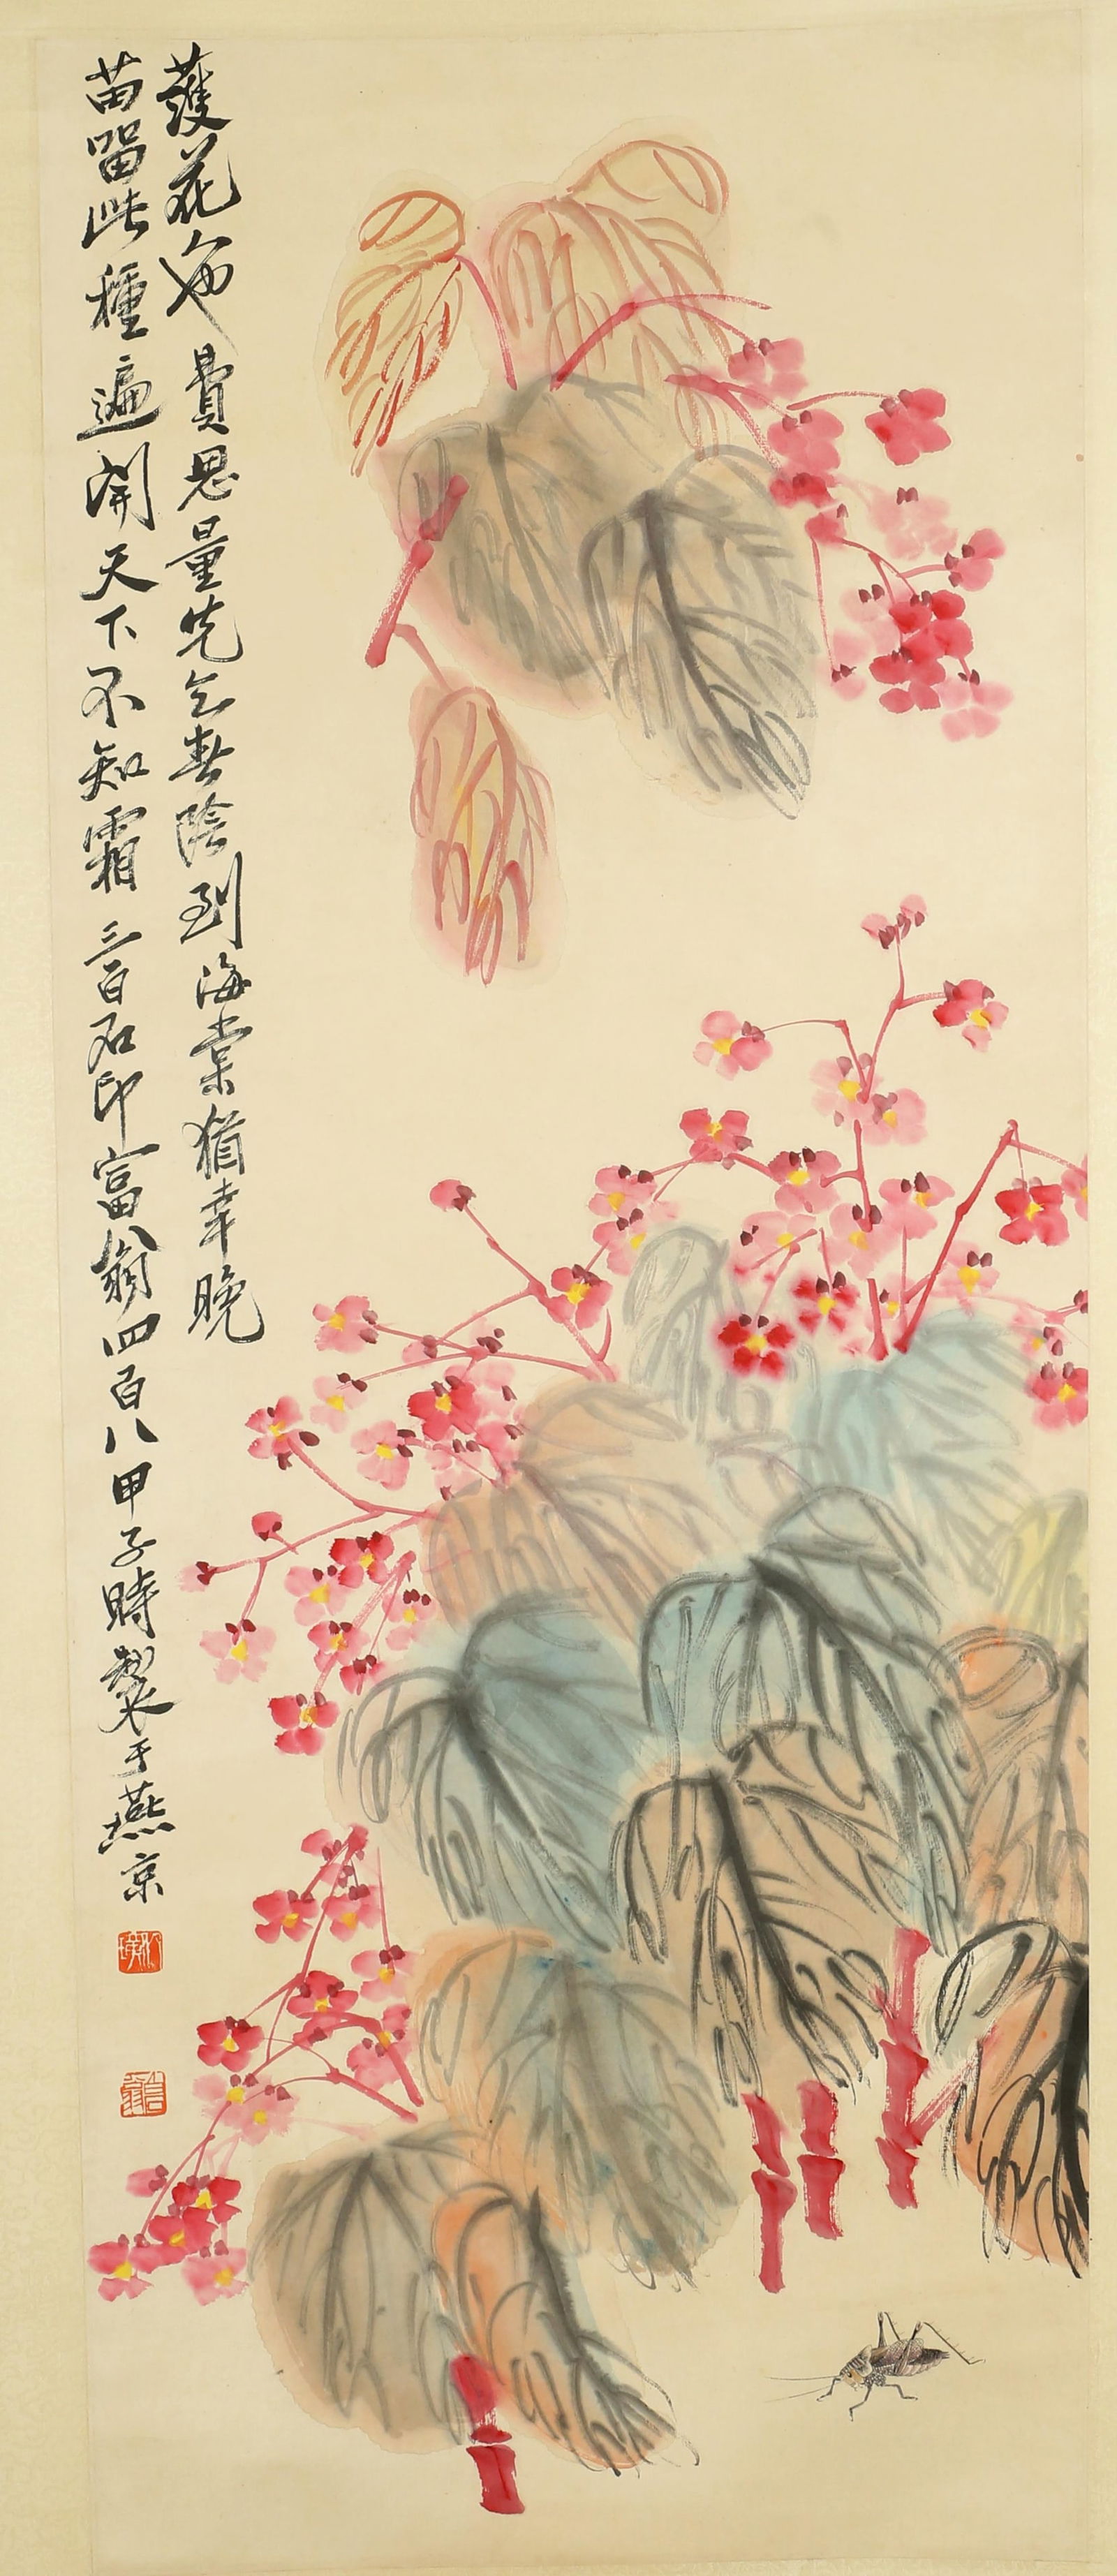 護花也費思量先乞春陰到海棠猶幸晚
苗留此種遍開天下不知霜三百石印富翁四百八甲子時製于燕京